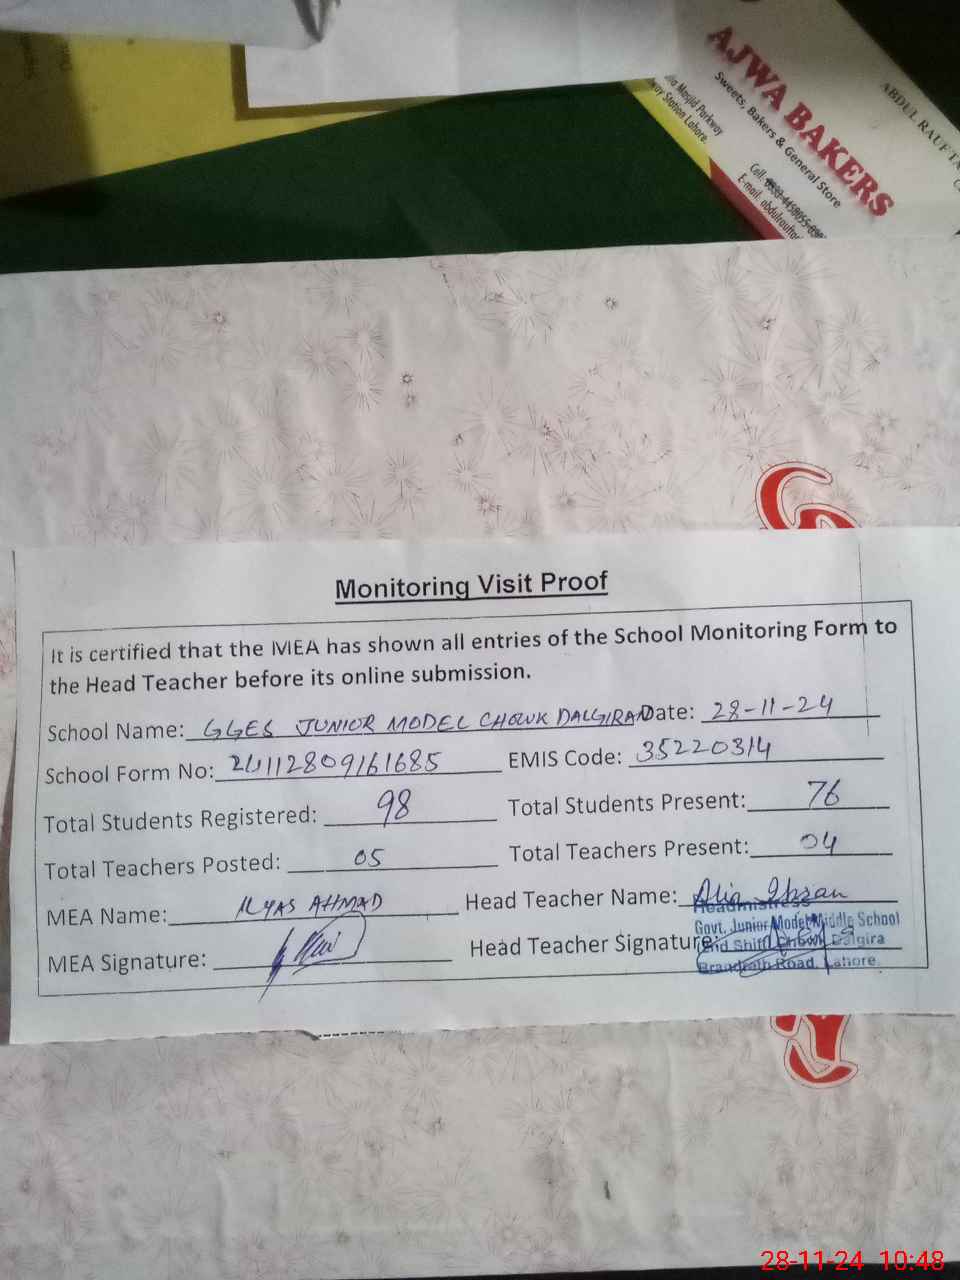 AJWA BAKERS
Sweets, Bakers & General Store
ABDUL RAUF
Masjid Parkway
way Station Lahore.
Cell:
E-mail:
Monitoring Visit Proof
It is certified that the MEA has shown all entries of the School Monitoring Form to
the Head Teacher before its online submission.
School Name: GGES JUNIOR MODEL CHOWK DALGIRAN Date: 28-11-24
School Form No: EMIS Code: 35220314
Total Students Registered: 98 Total Students Present: 76
Total Teachers Posted: 05 Total Teachers Present: 04
MEA Name: ILYAS AHMAD Head Teacher Name: Alia
Headmistress
Govt. Junior Model Middle School
MEA Signature: Head Teacher Signature:
2nd Shift Chowk Dalgira
Brandrath Road, Lahore.
28-11-24 10:48